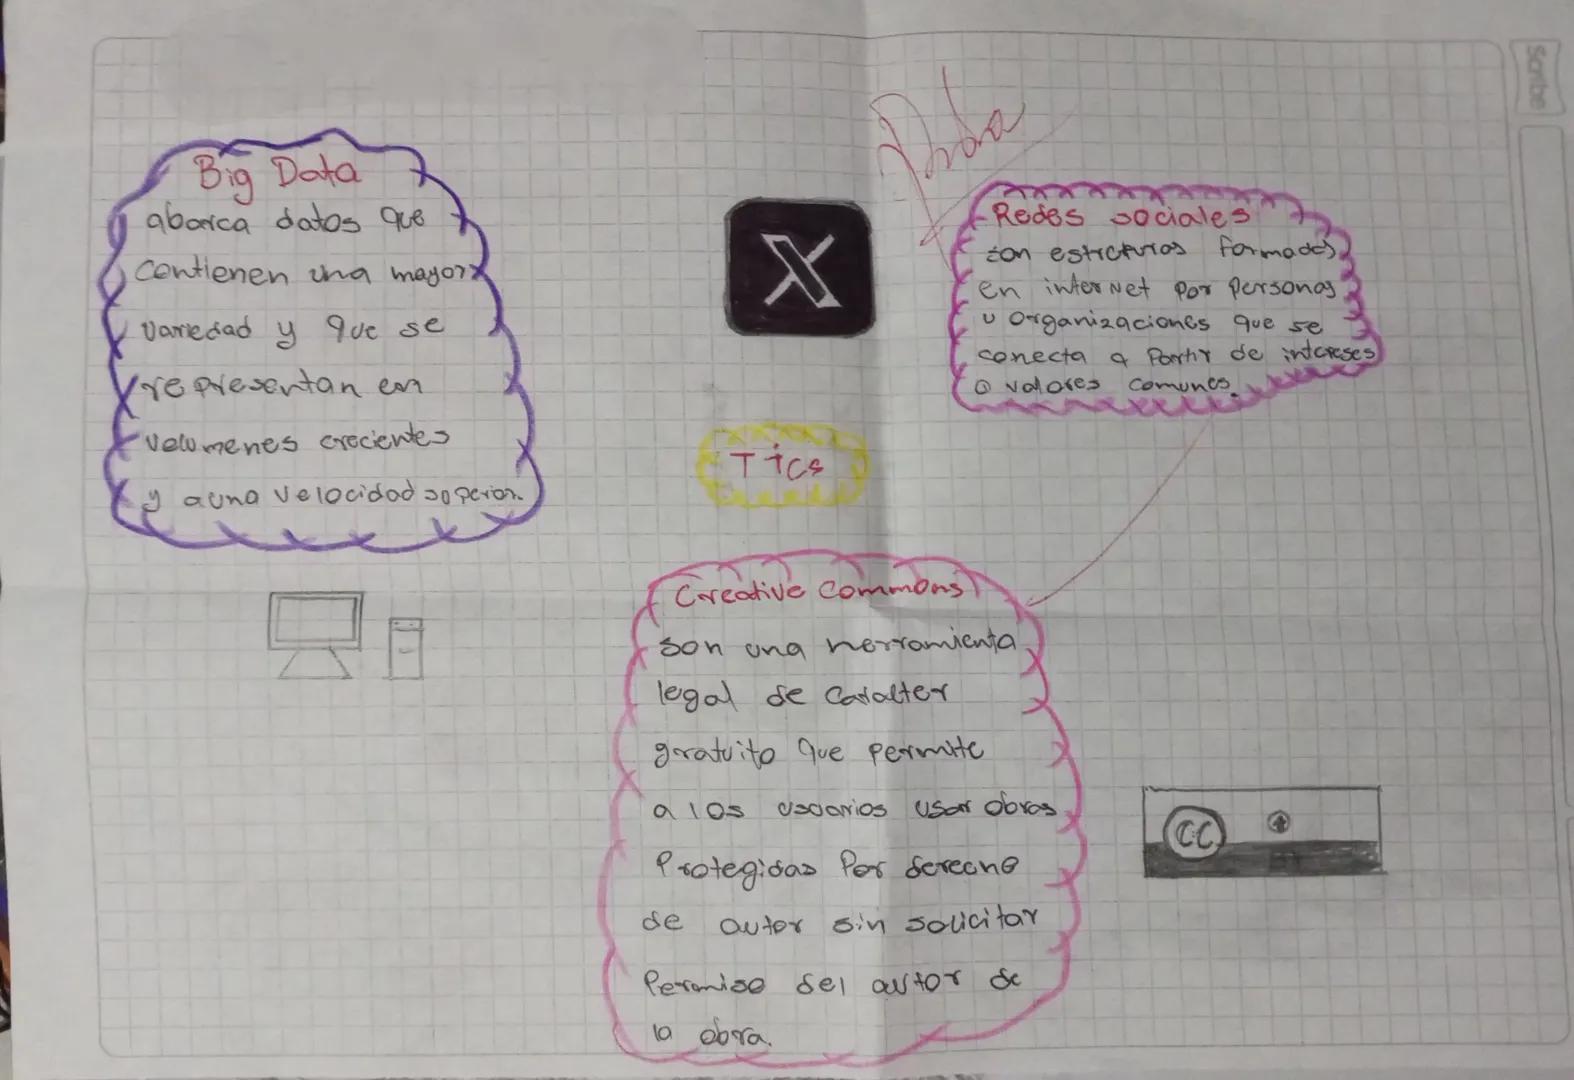 Big Data
abarca datos que
contienen una mayor
variedad y que se
representan en
volumenes crecientes
y a una velocidad superior.
X
Redes sociales
son estructuras formadas
en internet por personas
u organizaciones que se
conecta a partir de intereses
o valores comunes.
Tics
Creative Commons
son una herramienta
legal de caracter
gratuito que permite
a los usuarios usar obras
protegidas por derecho
de autor sin solicitar
permiso del autor de
la obra.
CC
Scribe